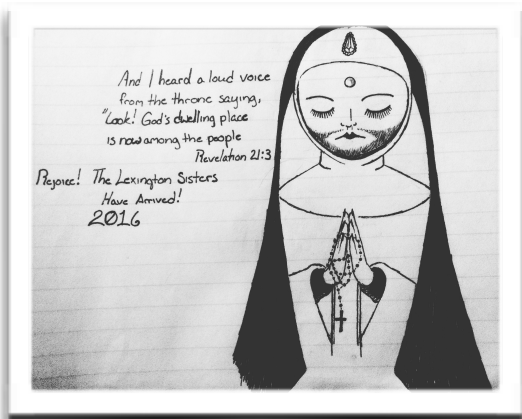 And I heard a loud voice
from the throne saying,
"Look! God's dwelling place
is now among the people
Revelation 21:3
Rejoice! The Lexington Sisters
Have Arrived!
2016